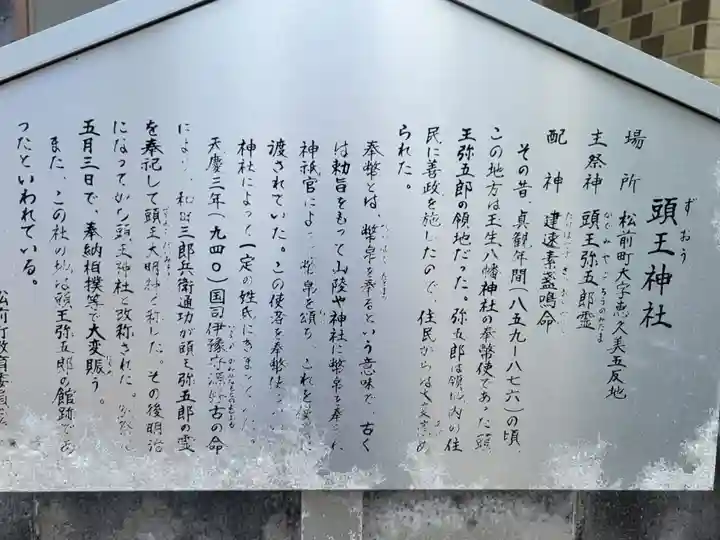 頭王神社
ずおう
場所 松前町大字恵久美五反地
主祭神 頭王弥五郎霊
配神 建速素盞鳴命
その昔、貞観年間(八五九ー八七六)の頃、
この地方は玉生八幡神社の奉幣使であった頭
王弥五郎の領地だった。弥五郎は領地内の住
民に善政を施したので、住民からは
られた。
奉幣とは、幣帛を奉るという意味で、古く
は勅旨をもって山陵や神社に幣帛を奉
神祇官によ 幣帛を頒ち、これを
渡されていた。この使者を奉幣使
神社によって一定の姓氏にきま
天慶三年(九四〇)国司伊豫守 古の命
によ 三郎兵衛通功が頭王弥五郎の霊
を奉祀して頭王大明神と称した。その後明治
になってから頭王神社と改称された。
五月三日で、奉納相撲等で大変賑う。
また、この社の地は頭王弥五郎の館跡であ
ったといわれている。
松前町教育委員会